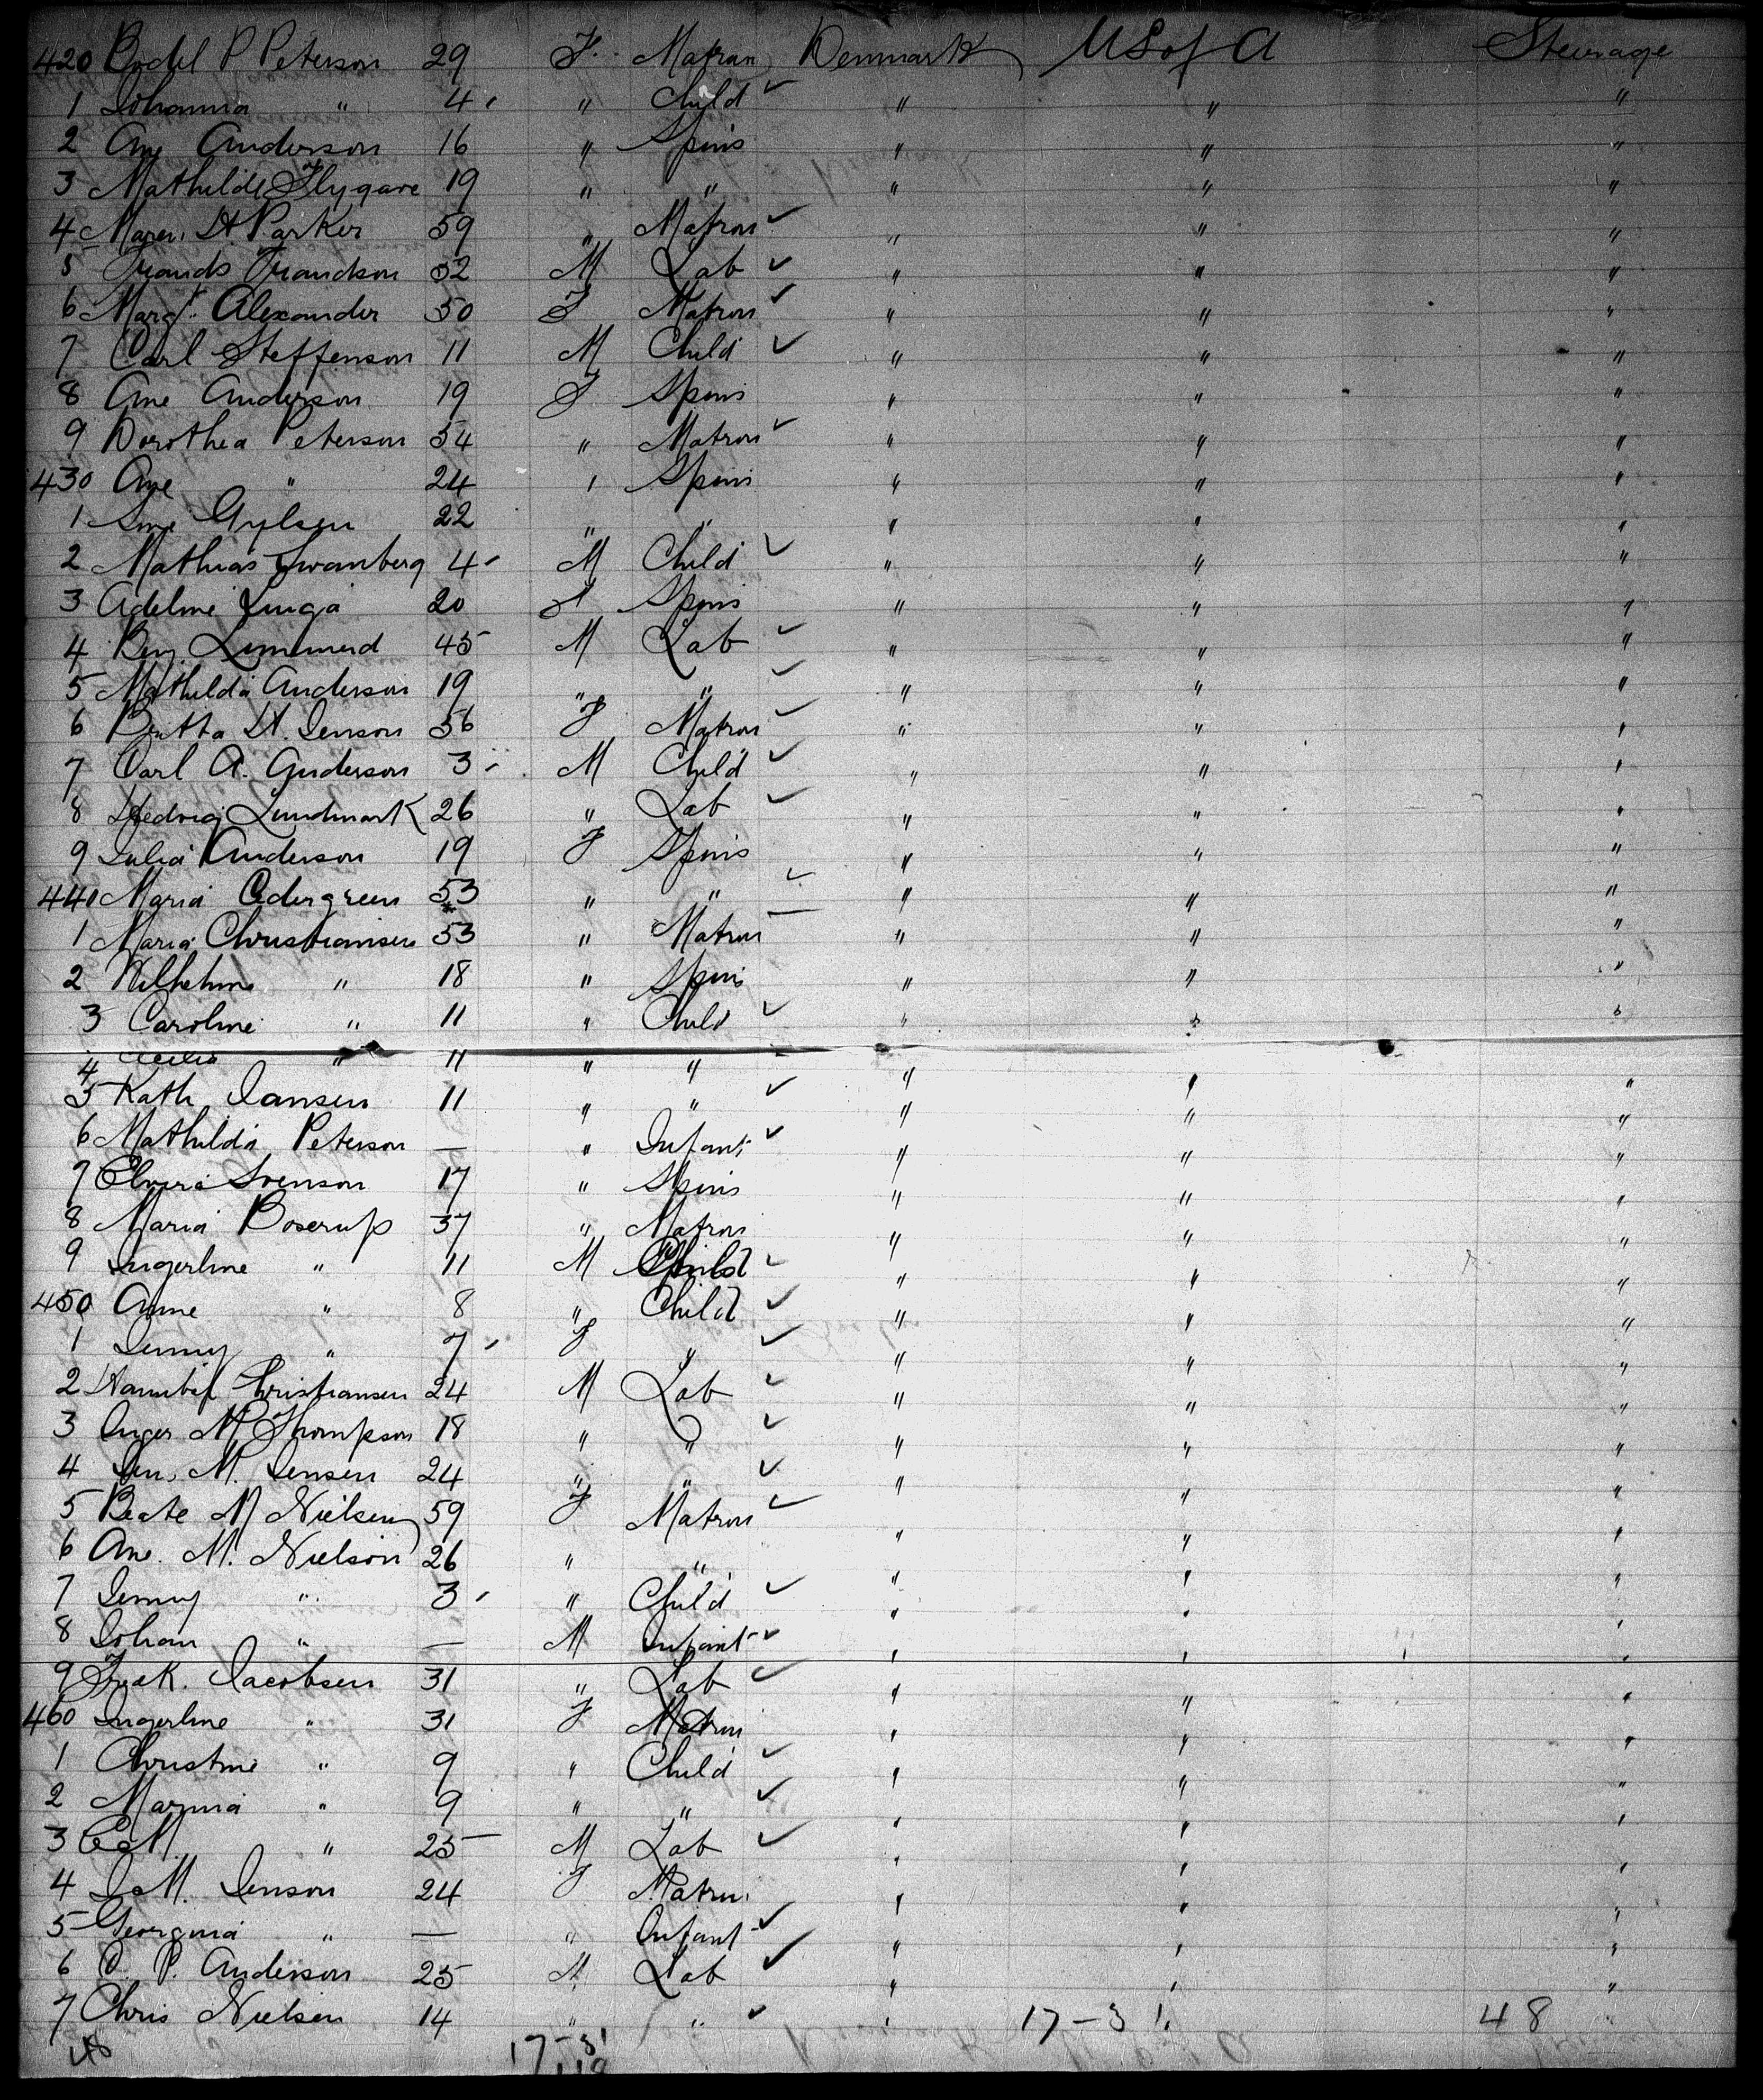 420 Bodel P Peterson 29 F. Matran Denmark US of A Steerage
1 Johanna " 4 " Child ✓ " " "
2 Ane Anderson 16 " Spins " " "
3 Mathilde Flygare 19 " " " " "
4 Maren H Parker 59 " Matron ✓ " " "
5 Trands Trandson 52 M Lab ✓ " " "
6 Margt. Alexander 50 F Matron ✓ " " "
7 Carl Steffenson 11 M Child ✓ " " "
8 Ane Anderson 19 F Spins " " "
9 Dorothea Peterson 54 " Matron ✓ " " "
430 Ane " 24 " Spins " " "
1 22 " " " " "
2 Mathias Swanberg 4 M Child ✓ " " "
3 Adeline Linga 20 F Spins " " "
4 Benj. 45 M Lab ✓ " " "
5 Mathilda Anderson 19 " " ✓ " " "
6 H. Jenson 56 F Matron ✓ " " "
7 Carl A. Anderson 3 M Child ✓ " " "
8 Hedvig Lundmark 26 " Lab ✓ " " "
9 Julia Anderson 19 F Spins " " "
440 Maria Cedergreen 53 " " ✓ " " "
1 Maria Christiansen 53 " Matron " " "
2 Wilhelmine " 18 " Spins " " "
3 Caroline " 11 " Child ✓ " " "
4 Cecilia " 11 " " " " "
5 Kath Jansen 11 " " ✓ " " "
6 Mathilda Peterson — " Infant ✓ " " "
7 Elvira Svenson 17 " Spins " " "
8 Maria Boserup 37 " Matron " " "
9 Ingerline " 11 M Child ✓ " " "
450 Anne " 8 " Child ✓ " " "
1 Jenny " 7 F " ✓ " " "
2 Hannibal Christiansen 24 M Lab ✓ " " "
3 Inger M Thompson 18 " " ✓ " " "
4 Jen. M. Jensen 24 " " ✓ " " "
5 Beate M Nielsen 59 F Matron ✓ " " "
6 Ane. M. Nielson 26 " " " " "
7 Jenny " 3 " Child ✓ " " "
8 Johan " — M Infant ✓ " " "
9 Fredk. Jacobsen 31 " Lab ✓ " " "
460 Ingerline " 31 F Matron " " "
1 Christine " 9 " Child ✓ " " "
2 Marina " 9 " " ✓ " " "
3 " 25 M Lab ✓ " " "
4 J M. Jenson 24 F Matron " " "
5 Georgina " — " Infant ✓ " " "
6 C. P. Anderson 25 M Lab ✓ " " "
7 Chris Nielsen 14 " " ✓ " 17-31. 48 "
48 17-31